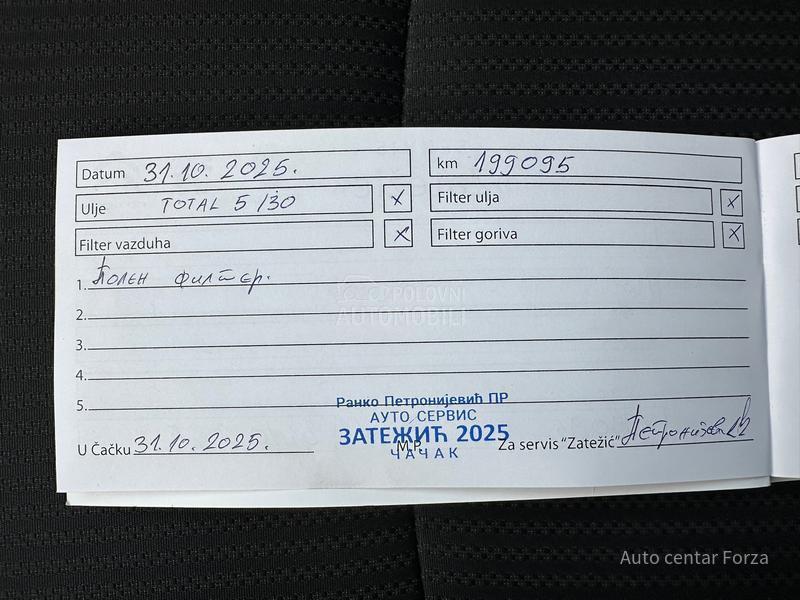 Datum 31.10.2025. km 199095
Ulje TOTAL 5/30 X Filter ulja X
Filter vazduha X Filter goriva X
1. Полен филтер.
2.
3.
4.
5.
Ранко Петронијевић ПР
АУТО СЕРВИС
ЗАТЕЖИЋ 2025
ЧАЧАК
U Čačku 31.10.2025. M.P. Za servis "Zatežić"
POLOVNI
AUTOMOBILI
Auto centar Forza